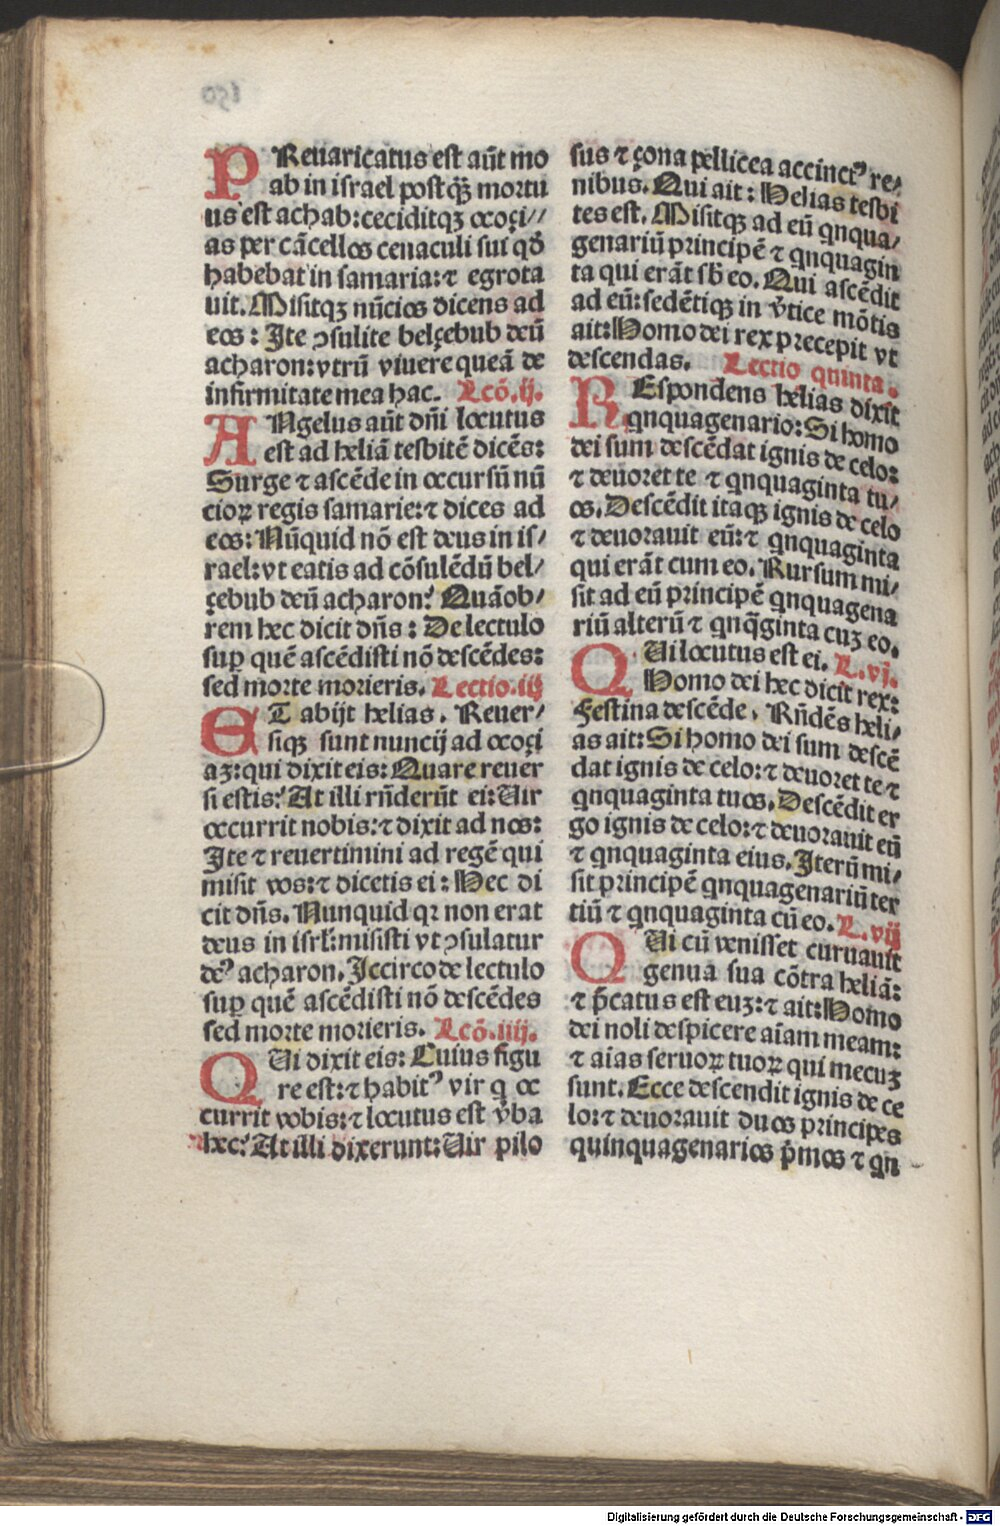 PReuaricatus est aūt mo
ab in israel postꝙ̄ mortu
us est achab: ceciditqꝫ ococi//
as per cācellos cenaculi sui qd̄
habebat in samaria: ⁊ egrota
uit. Misitqꝫ nūcios dicens ad
eos: Ite ꝯsulite belçebub deū
acharon: vtrū viuere queā de
infirmitate mea hac. Lcō. ij.
ANgelus aūt dn̄i locutus
est ad heliā tesbitē dicēs:
Surge ⁊ ascēde in occursū nū
cioꝝ regis samarie: ⁊ dices ad
eos: Nūquid nō est deus in is/
rael: vt eatis ad cōsulēdū bel/
çebub deū acharon? Quāob/
rem hec dicit dn̄s: De lectulo
suꝑ quē ascēdisti nō descēdes:
sed morte morieris. Lectio. iij
ET abijt helias. Reuer/
siqꝫ sunt nuncij ad ocoçi
aꝫ: qui dixit eis: Quare reuer
si estis? At illi rn̄derūt ei: Uir
occurrit nobis: ⁊ dixit ad nos:
Ite ⁊ reuertimini ad regē qui
misit vos: ⁊ dicetis ei: Hec di
cit dn̄s. Nunquid qꝛ non erat
deus in isrl̄: misisti vt ꝯsulatur
deꝰ acharon. Iccirco de lectulo
suꝑ quē ascēdisti nō descēdes
sed morte morieris. Lcō. iiij.
QUi dixit eis: Cuius figu
re est: ⁊ habitꝰ vir q̇ oc
currit vobis: ⁊ locutus est v̄ba
hec? At illi dixerunt: Uir pilo
sus ⁊ çona pellicea accinctꝰ re/
nibus. Qui ait: Helias tesbi
tes est. Misitqꝫ ad eū qnqua/
genariū principē ⁊ qnquagin
ta qui erāt sb̄ eo. Qui ascēdit
ad eū: sedētiqꝫ in v̄tice mōtis
ait: Homo dei rex precepit vt
descendas. Lectio quinta.
REspondens helias dixit
qnquagenario: Si homo
dei sum descēdat ignis de celo:
⁊ deuoret te ⁊ qnquaginta tu/
os. Descēdit itaqꝫ ignis de celo
⁊ deuorauit eū: ⁊ qnquaginta
qui erāt cum eo. Rursum mi/
sit ad eū principē qnquagena
riū alterū ⁊ qnq̄ginta cuꝫ eo.
QUi locutus est ei. L. vj.
Homo dei hec dicit rex:
Festina descēde. Rn̄dēs heli/
as ait: Si homo dei sum descē
dat ignis de celo: ⁊ deuoret te ⁊
qnquaginta tuos. Descēdit er
go ignis de celo: ⁊ deuorauit eū
⁊ qnquaginta eius. Iterū mi/
sit principē qnquagenariū ter
tiū ⁊ qnquaginta cū eo. L. vij
QUi cū venisset curuauit
genua sua cōtra heliā:
⁊ p̄catus est euꝫ: ⁊ ait: Homo
dei noli despicere aīam meam:
⁊ aīas seruoꝝ tuoꝝ qui mecuꝫ
sunt. Ecce descendit ignis de ce
lo: ⁊ deuorauit duos principes
quinquagenarios p̄mos ⁊ qn
Digitalisierung gefördert durch die Deutsche Forschungsgemeinschaft - DFG